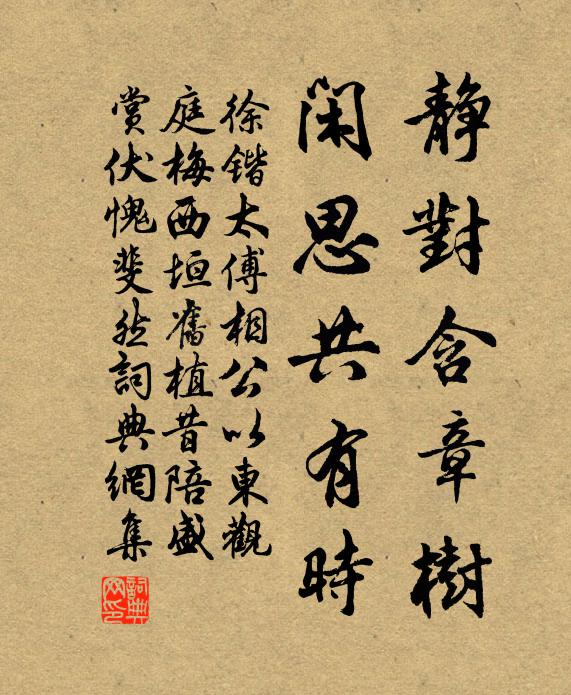 静對含章樹
閑思共有時
徐鍇太傅相公以東觀
庭梅西垣舊植昔陪盛
賞伏愧斐然詞典網集
詞典網印